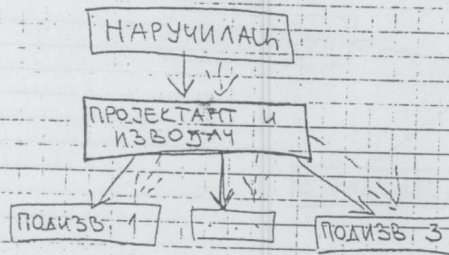 НАРУЧИЛАЦ
ПРОЈЕКТАНТ И
ИЗВОЂАЧ
ПОДИЗВ. 1
ПОДИЗВ. 3